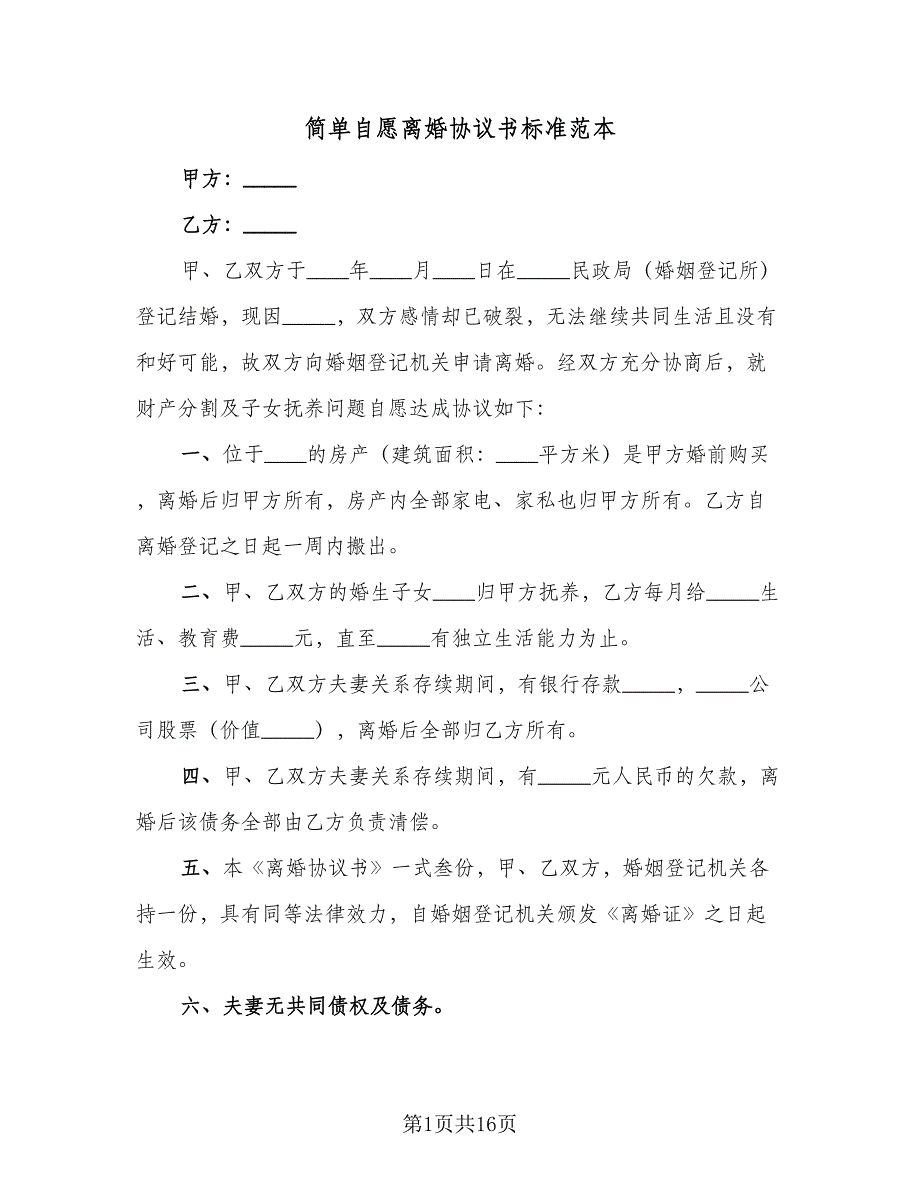 简单自愿离婚协议书标准范本
甲方：_____
乙方：_____
甲、乙双方于____年____月____日在_____民政局（婚姻登记所）
登记结婚，现因_____，双方感情却已破裂，无法继续共同生活且没有
和好可能，故双方向婚姻登记机关申请离婚。经双方充分协商后，就
财产分割及子女抚养问题自愿达成协议如下：
一、位于____的房产（建筑面积：____平方米）是甲方婚前购买
，离婚后归甲方所有，房产内全部家电、家私也归甲方所有。乙方自
离婚登记之日起一周内搬出。
二、甲、乙双方的婚生子女____归甲方抚养，乙方每月给_____生
活、教育费_____元，直至_____有独立生活能力为止。
三、甲、乙双方夫妻关系存续期间，有银行存款_____，_____公
司股票（价值_____），离婚后全部归乙方所有。
四、甲、乙双方夫妻关系存续期间，有_____元人民币的欠款，离
婚后该债务全部由乙方负责清偿。
五、本《离婚协议书》一式叁份，甲、乙双方，婚姻登记机关各
持一份，具有同等法律效力，自婚姻登记机关颁发《离婚证》之日起
生效。
六、夫妻无共同债权及债务。
第1页共16页